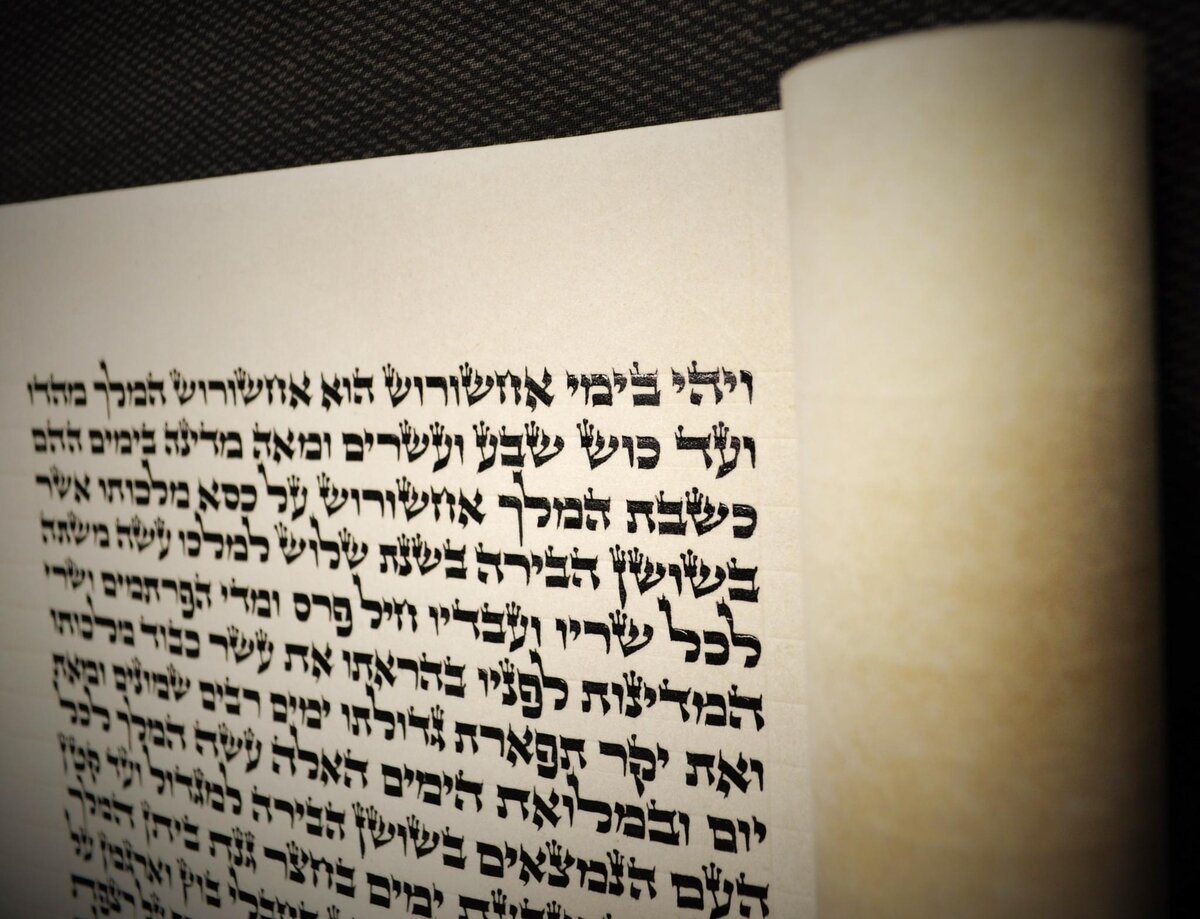 ויהי בימי אחשורוש הוא אחשורוש המלך מהדו
ועד כוש שבע ועשרים ומאה מדינה בימים ההם
כשבת המלך אחשורוש על כסא מלכותו אשר
בשושן הבירה בשנת שלוש למלכו עשה משתה
לכל שריו ועבדיו חיל פרס ומדי הפרתמים ושרי
המדינות לפניו בהראתו את עשר כבוד מלכותו
ואת יקר תפארת גדולתו ימים רבים שמונים ומאת
יום ובמלואת הימים האלה עשה המלך לכל
העם הנמצאים בשושן הבירה למגדול ועד קטן
ימים בחצר גנת ביתן המלך
בוץ וארגמן על